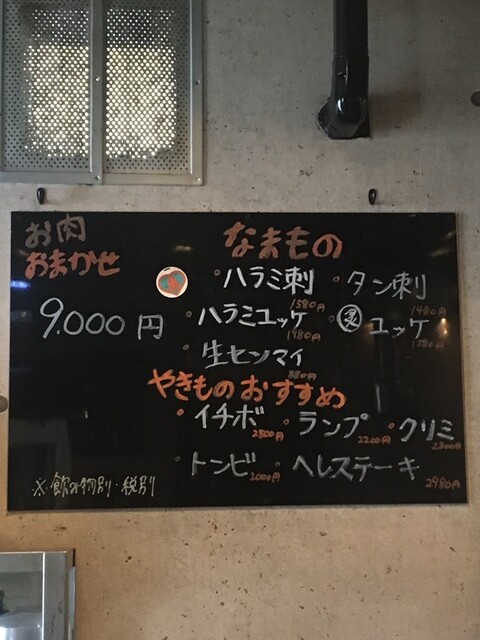 お肉
おまかせ
9.000円
※飲み物別・税別
なまもの
・ハラミ刺 1580円
・タン刺 1480円
・ハラミユッケ 1980円
・ユッケ 1280円
・生センマイ 880円
やきものおすすめ
・イチボ 2800円
・ランプ 2200円
・クリミ 2300円
・トンビ 2000円
・ヘレステーキ 2980円